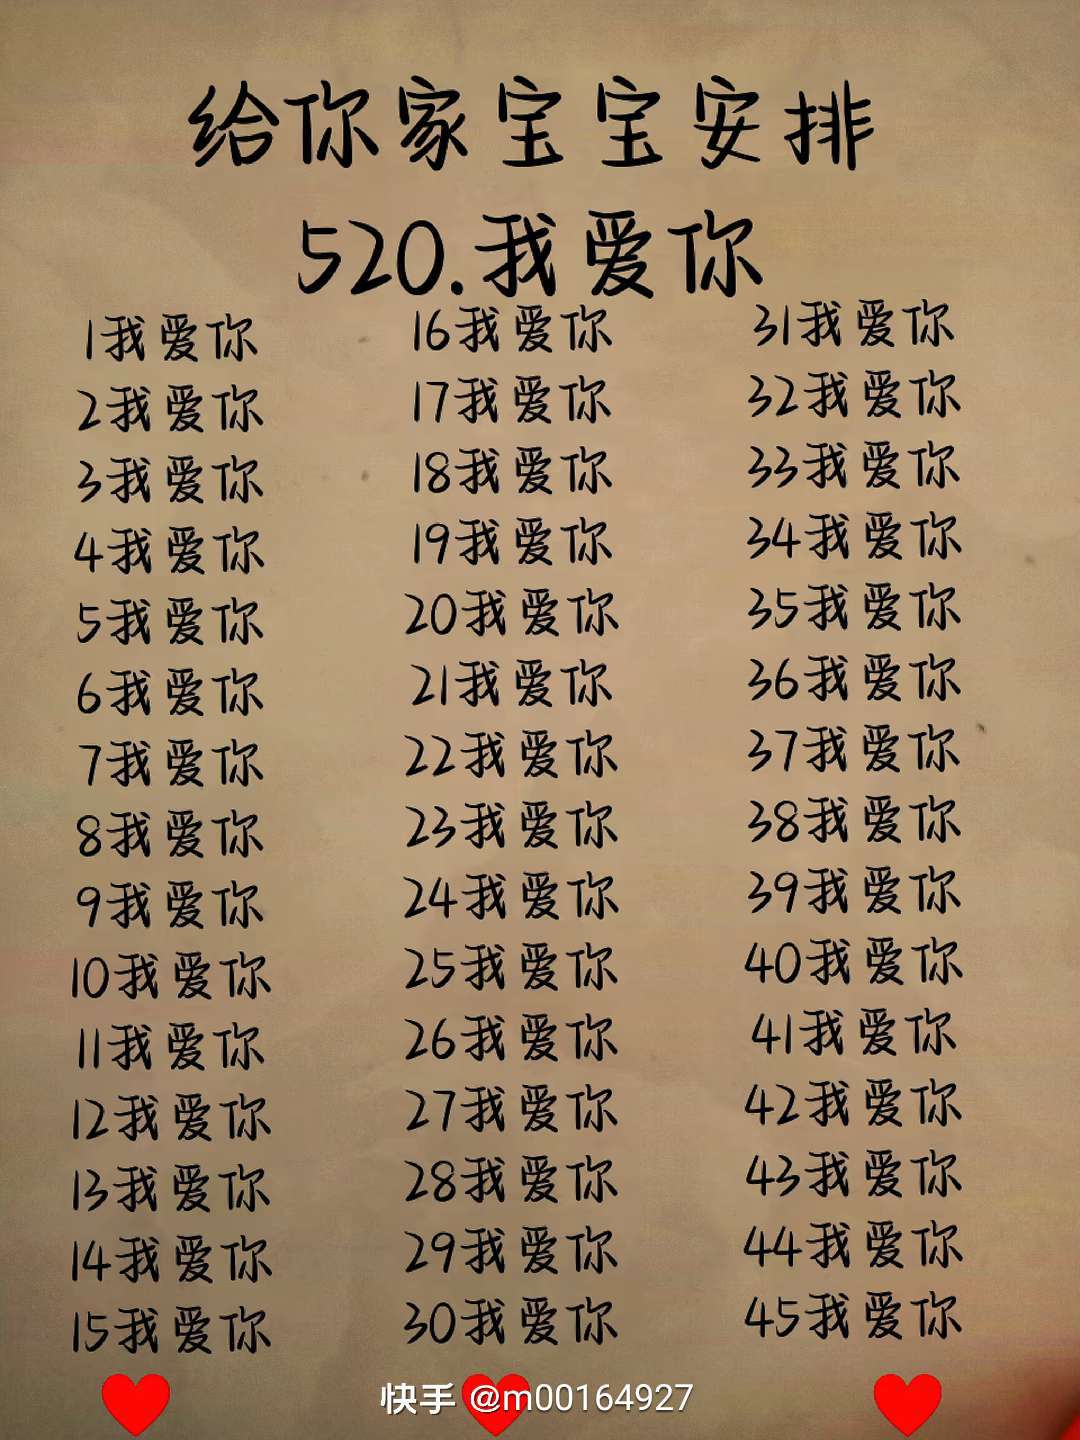 给你家宝宝安排
520.我爱你
1我爱你
2我爱你
3我爱你
4我爱你
5我爱你
6我爱你
7我爱你
8我爱你
9我爱你
10我爱你
11我爱你
12我爱你
13我爱你
14我爱你
15我爱你
16我爱你
17我爱你
18我爱你
19我爱你
20我爱你
21我爱你
22我爱你
23我爱你
24我爱你
25我爱你
26我爱你
27我爱你
28我爱你
29我爱你
30我爱你
31我爱你
32我爱你
33我爱你
34我爱你
35我爱你
36我爱你
37我爱你
38我爱你
39我爱你
40我爱你
41我爱你
42我爱你
43我爱你
44我爱你
45我爱你
快手 @m00164927